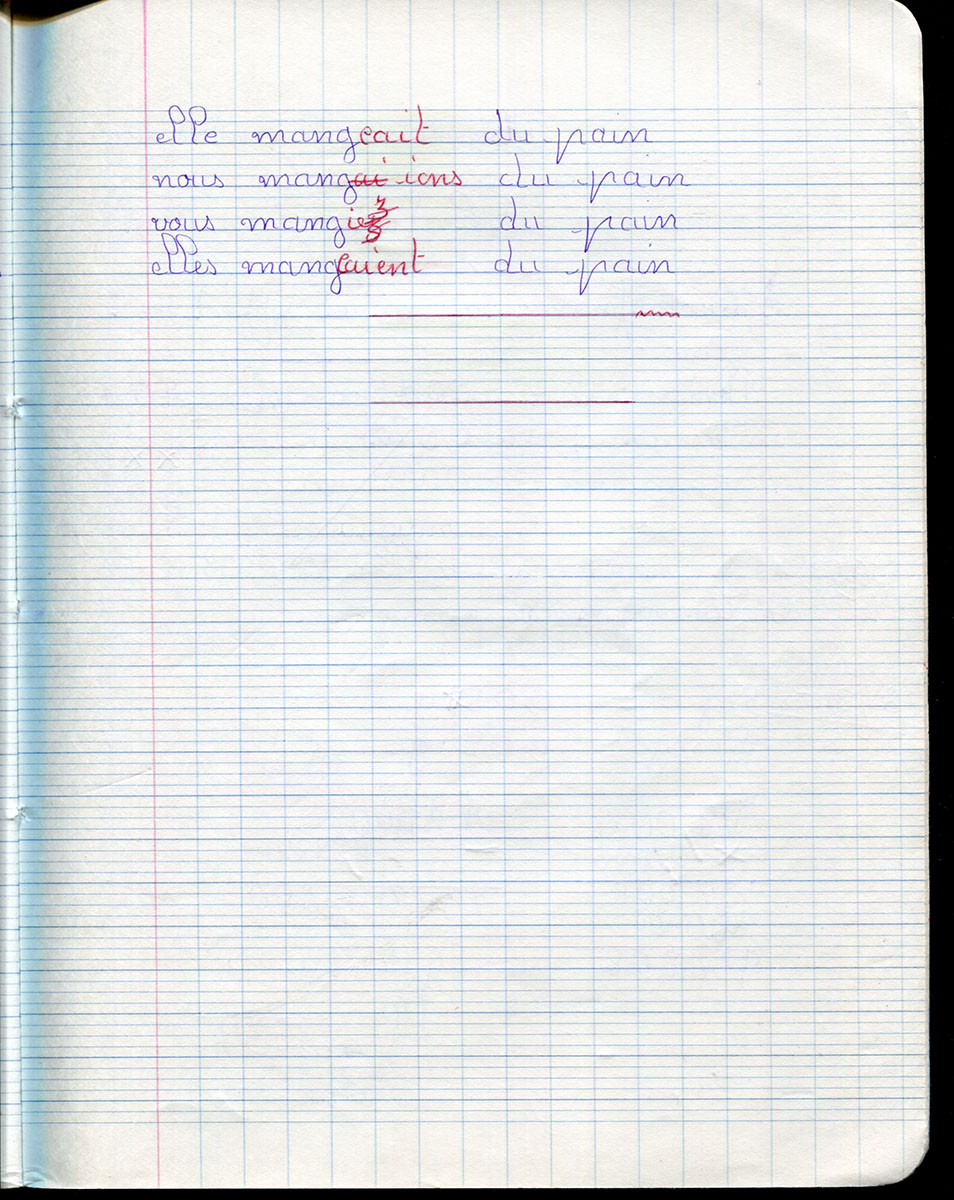 elle mangeait du pain
nous mangai ions du pain
vous mangiez du pain
elles mangeaient du pain